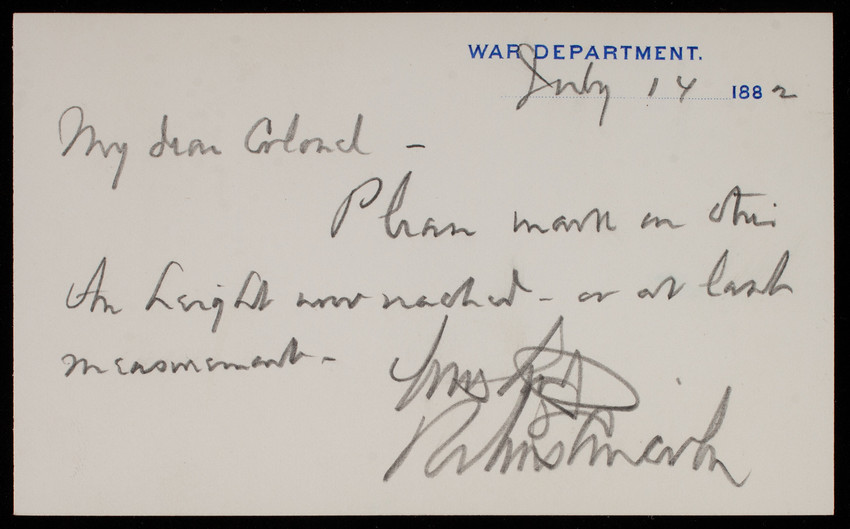 WAR DEPARTMENT.
July 14 1882
My dear Colonel -
Please mark on this
the height now reached - or at last
measurement -
Yours